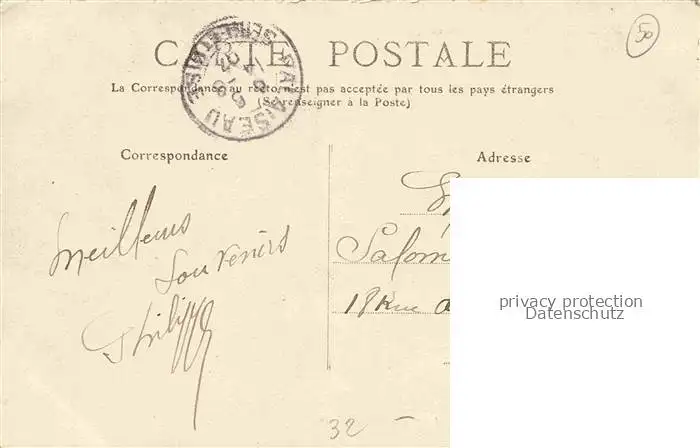 CARTE POSTALE
50
La Correspondance au recto n'est pas acceptée par tous les pays étrangers
(Se renseigner à la Poste)
PALAISEAU
Correspondance
Adresse
Meilleurs
Souvenirs
Philippe
Salom
18 Rue
privacy protection
Datenschutz
32